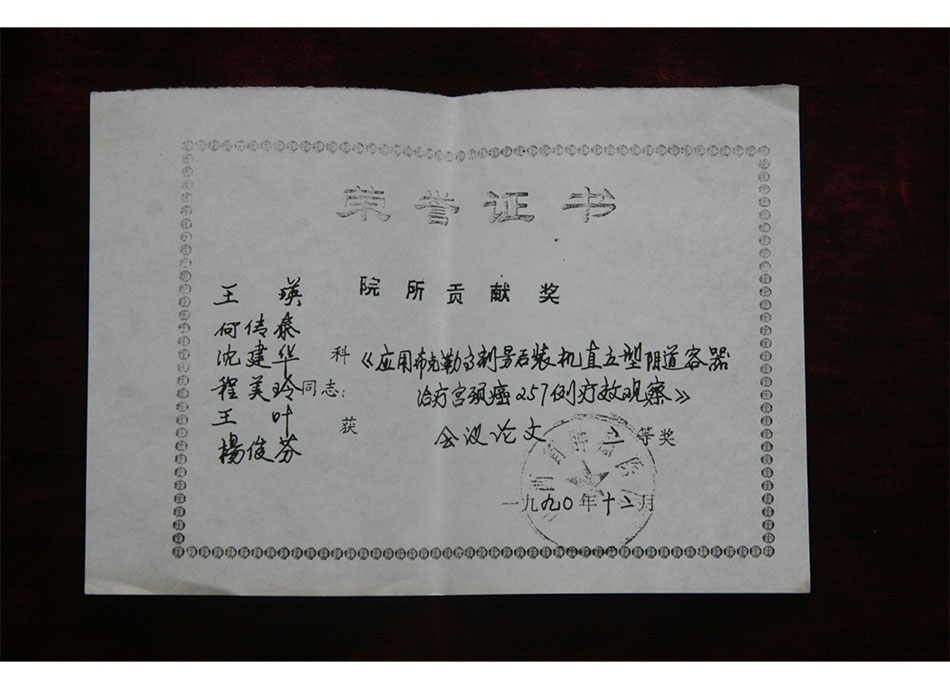 荣誉证书
院所贡献奖
王 瑛
何传泰
沈建华
程美玲 同志:
王 叶
楊俊芬
科《应用布克勒高剂量后装机直立型阴道容器
治疗宫颈癌257例疗效观察》
获 会议论文 等奖
一九九〇年十二月